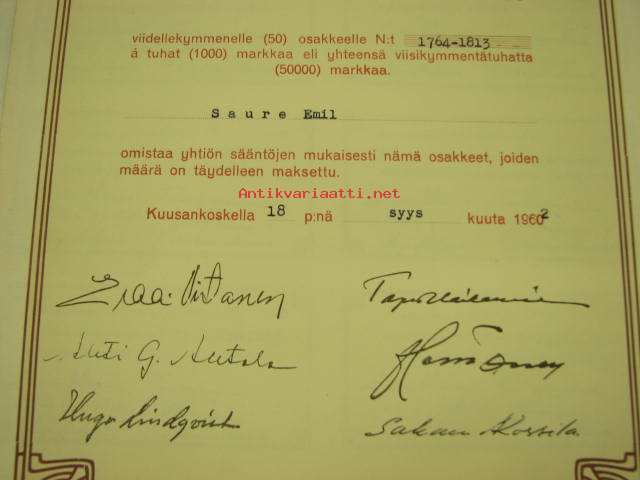 viidellekymmenelle (50) osakkeelle N:t 1764-1813
á tuhat (1000) markkaa eli yhteensä viisikymmentätuhatta
(50000) markkaa.
Saure Emil
omistaa yhtiön sääntöjen mukaisesti nämä osakkeet, joiden
määrä on täydelleen maksettu.
Antikvariaatti.net
Kuusankoskella 18 p:nä syys kuuta 1962
Antti G.
Hugo Lindqvist